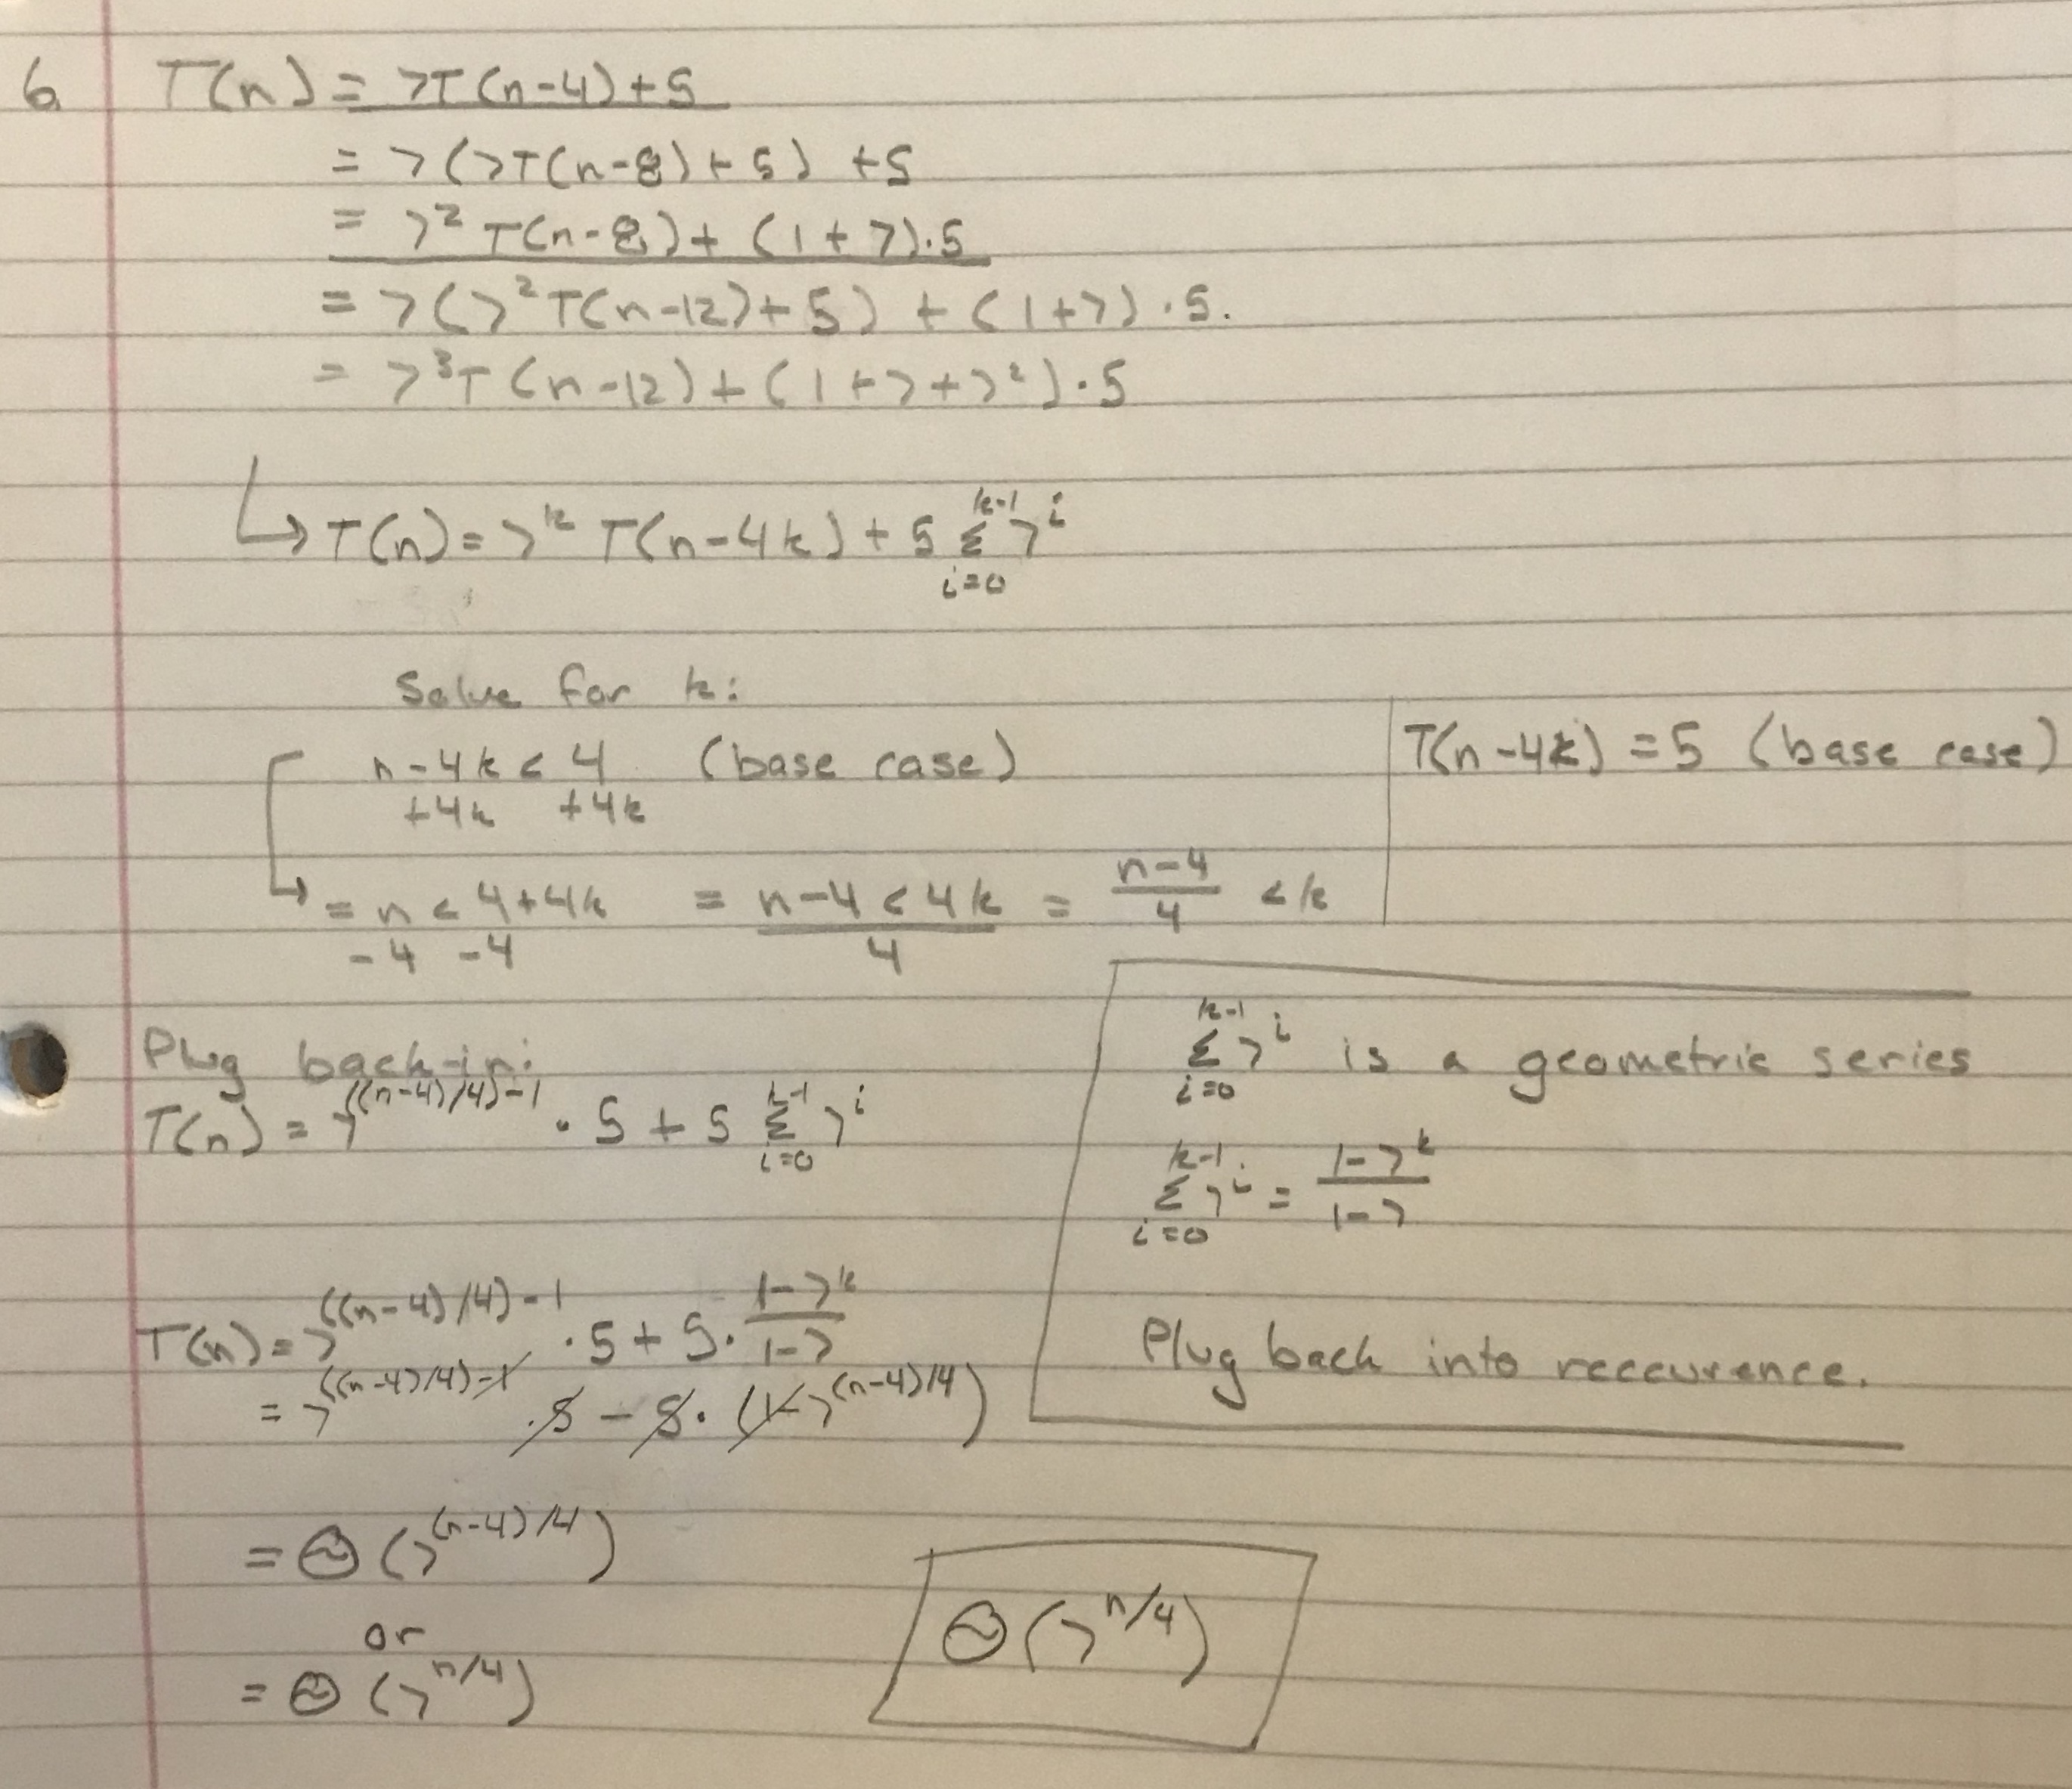 6. T(n) = 7T(n-4)+5
= 7(7T(n-8)+5) +5
= 7² T(n-8)+ (1+7)·5
= 7(7²T(n-12)+5) + (1+7)·5.
= 7³T(n-12)+(1+7+7²)·5
↳ T(n) = 7^k T(n-4k) + 5 Σ_{i=0}^{k-1} 7^i
Solve for k:
n-4k < 4 (base case)
+4k +4k
= n < 4+4k = (n-4 < 4k)/4 = (n-4)/4 < k
-4 -4
T(n-4k) = 5 (base case)
Plug back-in:
T(n) = 7^((n-4)/4)-1 · 5 + 5 Σ_{i=0}^{k-1} 7^i
Σ_{i=0}^{k-1} 7^i is a geometric series
Σ_{i=0}^{k-1} 7^i = (1-7^k)/(1-7)
Plug back into reccurence.
T(n) = 7^((n-4)/4)-1 · 5 + 5 · (1-7^k)/(1-7)
= 7^((n-4)/4)-1 · 5 - 5 · (1-7^(n-4)/4)
= Θ(7^(n-4)/4)
or
= Θ(7^n/4)
Θ(7^n/4)